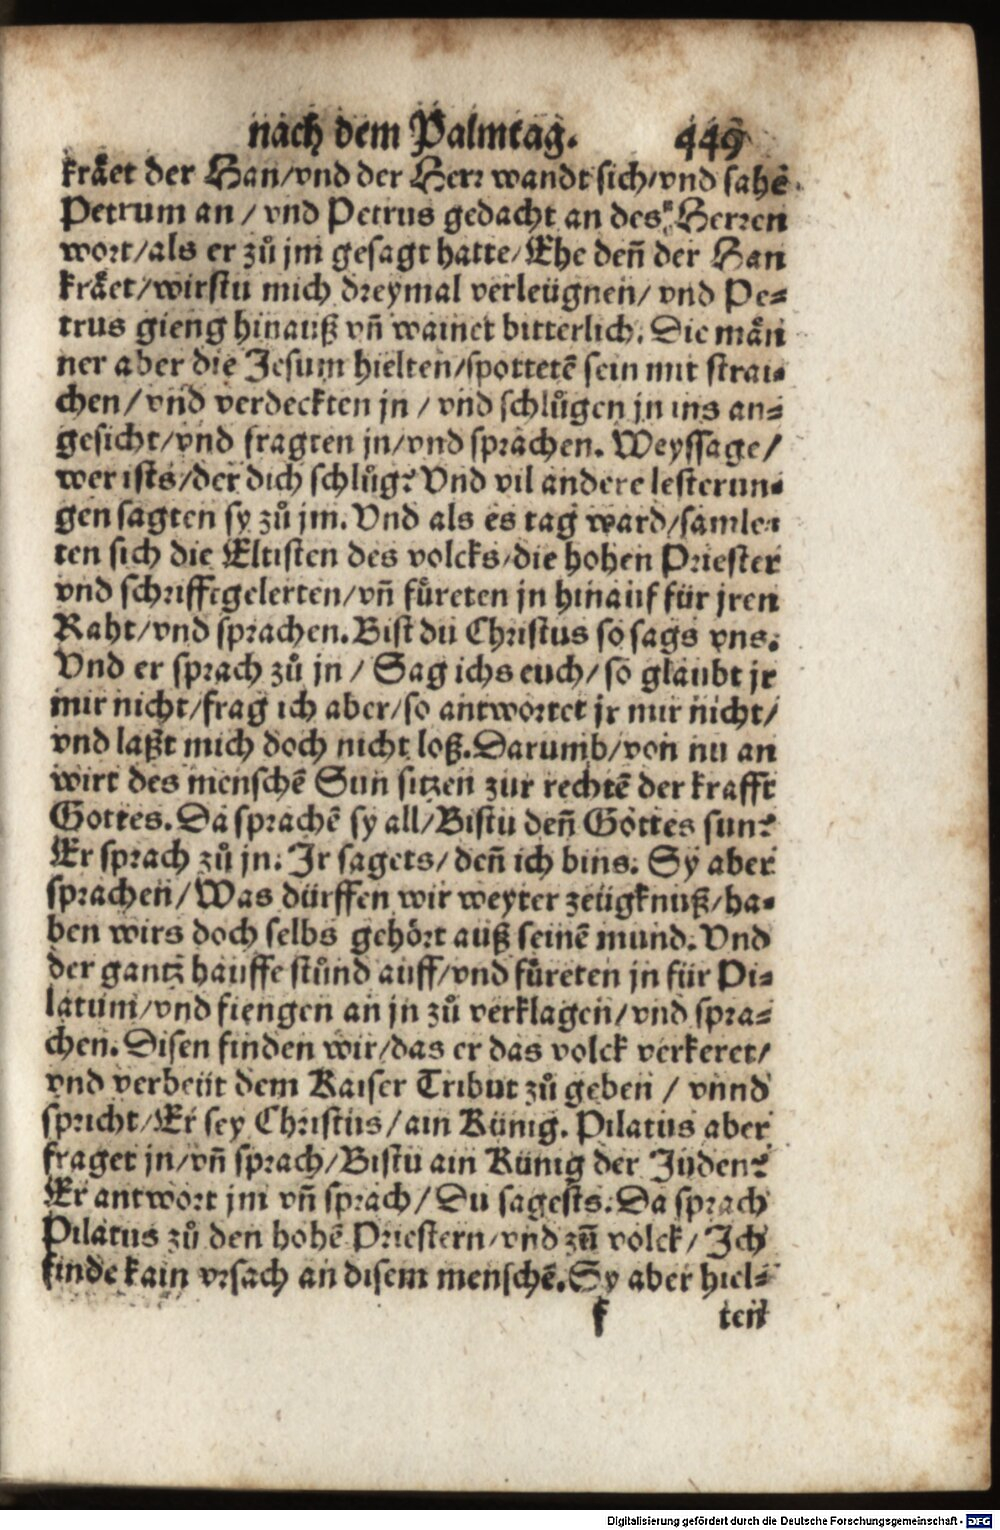 nach dem Palmtag. 449
kräet der Han/vnd der Herr wandt sich/vnd sahe
Petrum an / vnd Petrus gedacht an des Herren
wort/als er zů jm gesagt hatte/Ehe deñ der Han
kräet/wirstu mich dreymal verleügnen/ vnd Pe=
trus gieng hinauß vñ wainet bitterlich. Die män
ner aber die Jesum hielten/spottetē sein mit strai=
chen/ vnd verdeckten jn / vnd schlůgen jn ins an=
gesicht/vnd fragten jn/vnd sprachen. Weyssage/
wer ists/der dich schlůg? Vnd vil andere lesterun=
gen sagten sy zů jm. Vnd als es tag ward/samle=
ten sich die Eltisten des volcks/die hohen Priester
vnd schrifftgelerten/vñ fůreten jn hinauf für jren
Raht/vnd sprachen. Bist du Christus so sags vns.
Vnd er sprach zů jn / Sag ichs euch/ so glaubt jr
mir nicht/frag ich aber/so antwortet jr mir nicht/
vnd laßt mich doch nicht loß. Darumb/von nu an
wirt des menschē Sun sitzen zur rechtē der krafft
Gottes. Da sprachē sy all/Bistu deñ Gottes sun?
Er sprach zů jn. Ir sagets/ deñ ich bins. Sy aber
sprachen/ Was dürffen wir weyter zeügknuß/ha=
ben wirs doch selbs gehört auß seinē mund. Vnd
der gantz hauffe stůnd auff/vnd fůreten jn für Pi=
latum/vnd fiengen an jn zů verklagen/vnd spra=
chen. Disen finden wir/das er das volck verkeret/
vnd verbeüt dem Kaiser Tribut zů geben / vnnd
spricht/Er sey Christus/ain Künig. Pilatus aber
fraget jn/vñ sprach/Bistu ain Künig der Juden?
Er antwort jm vñ sprach/ Du sagests. Da sprach
Pilatus zů den hohē Priestern/vnd zū volck/ Ich
finde kain vrsach an disem menschē. Sy aber hiel=
f ten
Digitalisierung gefördert durch die Deutsche Forschungsgemeinschaft - DFG